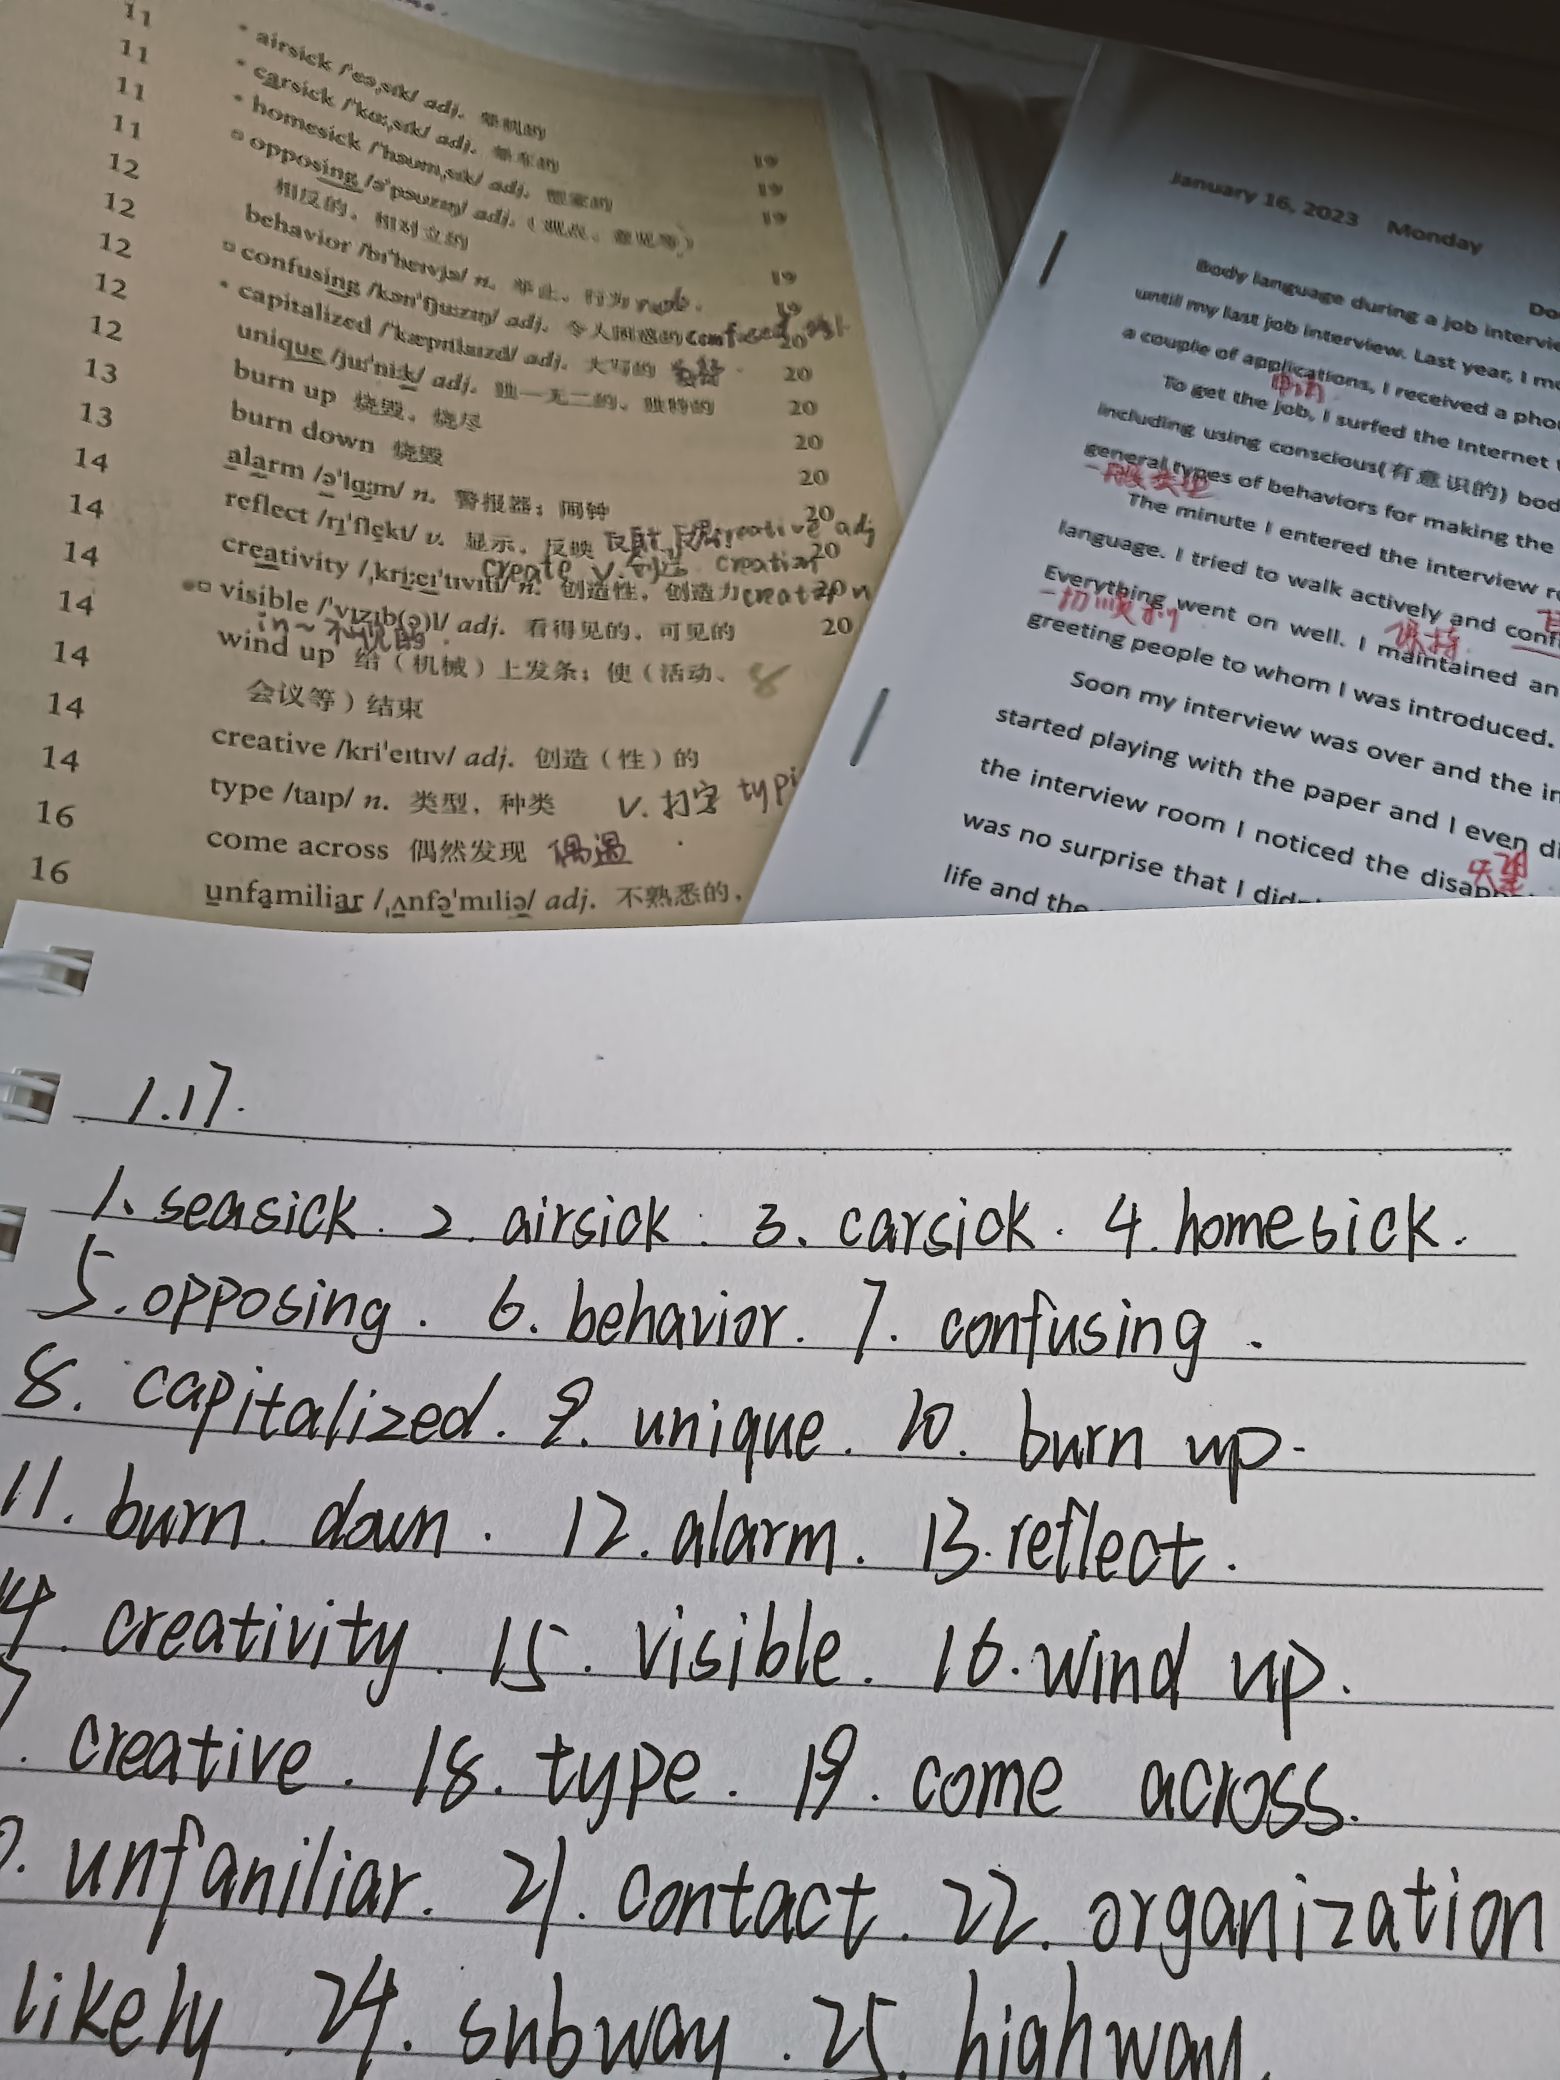 11
11 * airsick /ˈeəˌsɪk/ adj. 晕机的
11 * carsick /ˈkɑːˌsɪk/ adj. 晕车的
11 * homesick /ˈhəʊmˌsɪk/ adj. 想家的 19
12 opposing /əˈpəʊzɪŋ/ adj.（观点、意见等） 19
相反的，相对立的 19
12 behavior /bɪˈheɪvjə/ n. 举止，行为 19
12 confusing /kənˈfjuːzɪŋ/ adj. 令人困惑的 confused 19
12 * capitalized /ˈkæpɪtlaɪzd/ adj. 大写的 20
12 unique /juːˈniːk/ adj. 独一无二的，独特的 20
13 burn up 烧毁，烧尽 20
13 burn down 烧毁 20
14 alarm /əˈlɑːm/ n. 警报器；闹钟 20
14 reflect /rɪˈflekt/ v. 显示，反映 反射 creative adj 20
create v. 创造 20
14 creativity /ˌkriːeɪˈtɪvɪti/ n. 创造性，创造力 creation 20
14 visible /ˈvɪzɪb(ə)l/ adj. 看得见的，可见的 20
in~
14 wind up 给（机械）上发条；使（活动、 8
会议等）结束
14 creative /kriˈeɪtɪv/ adj. 创造（性）的
14 type /taɪp/ n. 类型，种类 v. 打字
16 come across 偶然发现 偶遇
16 unfamiliar /ˌʌnfəˈmɪliə/ adj. 不熟悉的，
January 16, 2023 Monday
Body language during a job
untill my last job interview. Last year, I
a couple of applications, I received a
申请
To get the job, I surfed the Internet
including using conscious(有意识的)
general types of behaviors for making the
一般类型
The minute I entered the interview
language. I tried to walk actively and
Everything went on well. I maintained
一切顺利 保持
greeting people to whom I was introduced.
Soon my interview was over and the
started playing with the paper and I even
the interview room I noticed the
失望
was no surprise that I
life and the
1.17.
1. seasick. 2. airsick. 3. carsick. 4. homesick.
5. opposing. 6. behavior. 7. confusing.
8. capitalized. 9. unique. 10. burn up.
11. burn down. 12. alarm. 13. reflect.
14. creativity. 15. visible. 16. wind up.
7. creative. 18. type. 19. come across.
unfaniliar. 21. contact. 22. organization
likely. 24. subway. 25. highway.